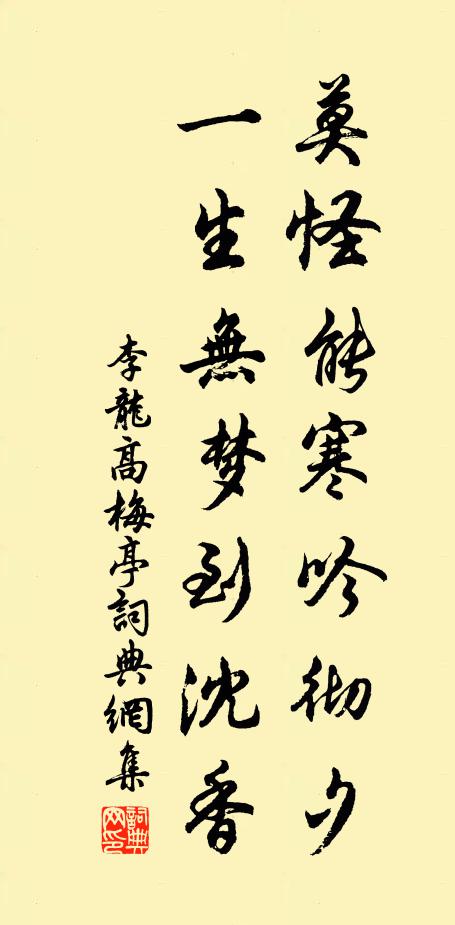 莫怪能寒吟彻夕
一生無梦到沈香
李龍高梅亭詞典網集
詞典网印